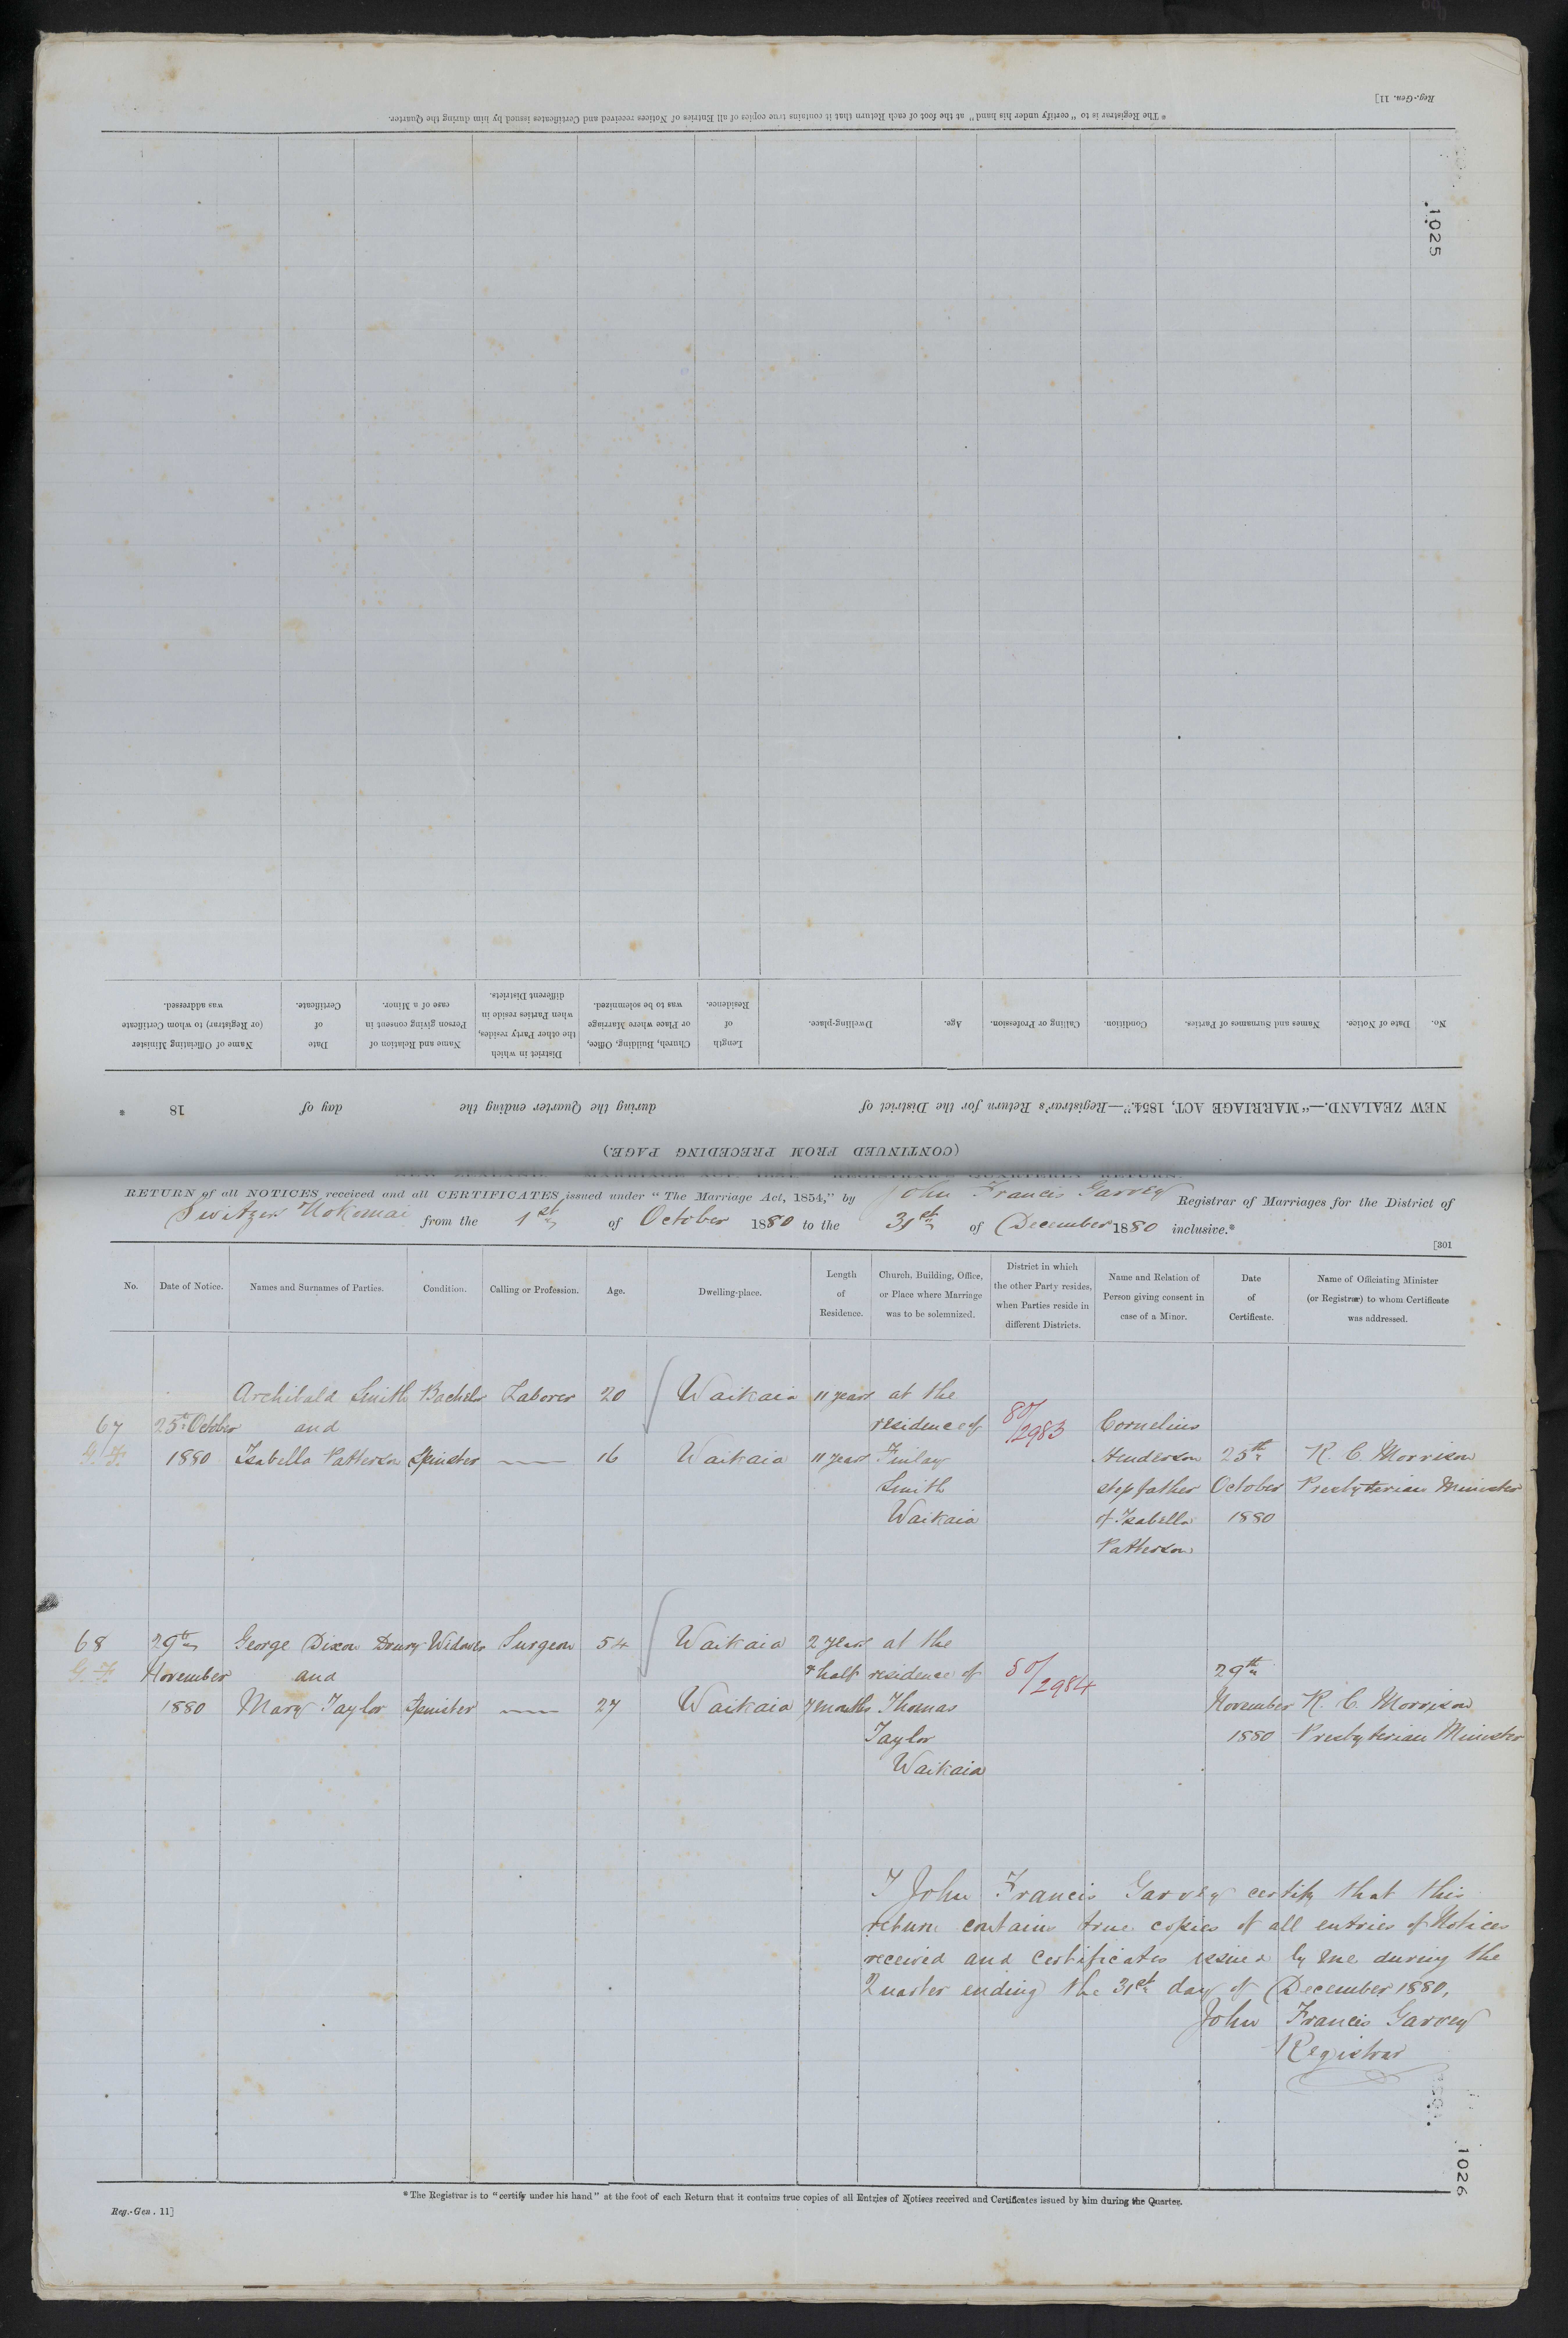 Reg.-Gen. 11]
* The Registrar is to "certify under his hand" at the foot of each Return that it contains true copies of all Entries of Notices received and Certificates issued by him during the Quarter.
1025
No.
Date of Notice.
Names and Surnames of Parties.
Condition.
Calling or Profession.
Age.
Dwelling-place.
Length
of
Residence.
Church, Building, Office,
or Place where Marriage
was to be solemnized.
District in which
the other Party resides,
when Parties reside in
different Districts.
Name and Relation of
Person giving consent in
case of a Minor.
Date
of
Certificate.
Name of Officiating Minister
(or Registrar) to whom Certificate
was addressed.
NEW ZEALAND.—"MARRIAGE ACT, 1854."—Registrar's Return for the District of during the Quarter ending the day of 18 .
(CONTINUED FROM PRECEDING PAGE.)
RETURN of all NOTICES received and all CERTIFICATES issued under "The Marriage Act, 1854," by John Francis Garvey Registrar of Marriages for the District of
Switzer Nokomai from the 1st of October 1880 to the 31st of December 1880 inclusive.*
[301
No.
Date of Notice.
Names and Surnames of Parties.
Condition.
Calling or Profession.
Age.
Dwelling-place.
Length
of
Residence.
Church, Building, Office,
or Place where Marriage
was to be solemnized.
District in which
the other Party resides,
when Parties reside in
different Districts.
Name and Relation of
Person giving consent in
case of a Minor.
Date
of
Certificate.
Name of Officiating Minister
(or Registrar) to whom Certificate
was addressed.
Archibald Smith Bachelor Laborer 20 Waikaia 11 years at the
67 25th October and residence of 80/2983 Cornelius
1880 Isabella Patterson Spinster — 16 Waikaia 11 years Finlay Henderson 25th R. C. Morrison
Smith stepfather October Presbyterian Minister
Waikaia of Isabella 1880
Patterson
68 29th George Dixon Drury Widower Surgeon 54 Waikaia 2 years at the
November and & half residence of 80/2984 29th
1880 Mary Taylor Spinster — 27 Waikaia 7 months Thomas November R. C. Morrison
Taylor 1880 Presbyterian Minister
Waikaia
I John Francis Garvey certify that this
return contains true copies of all entries of Notices
received and certificates issued by me during the
Quarter ending the 31st day of December 1880.
John Francis Garvey
Registrar
1026
* The Registrar is to "certify under his hand" at the foot of each Return that it contains true copies of all Entries of Notices received and Certificates issued by him during the Quarter.
Reg.-Gen. 11]